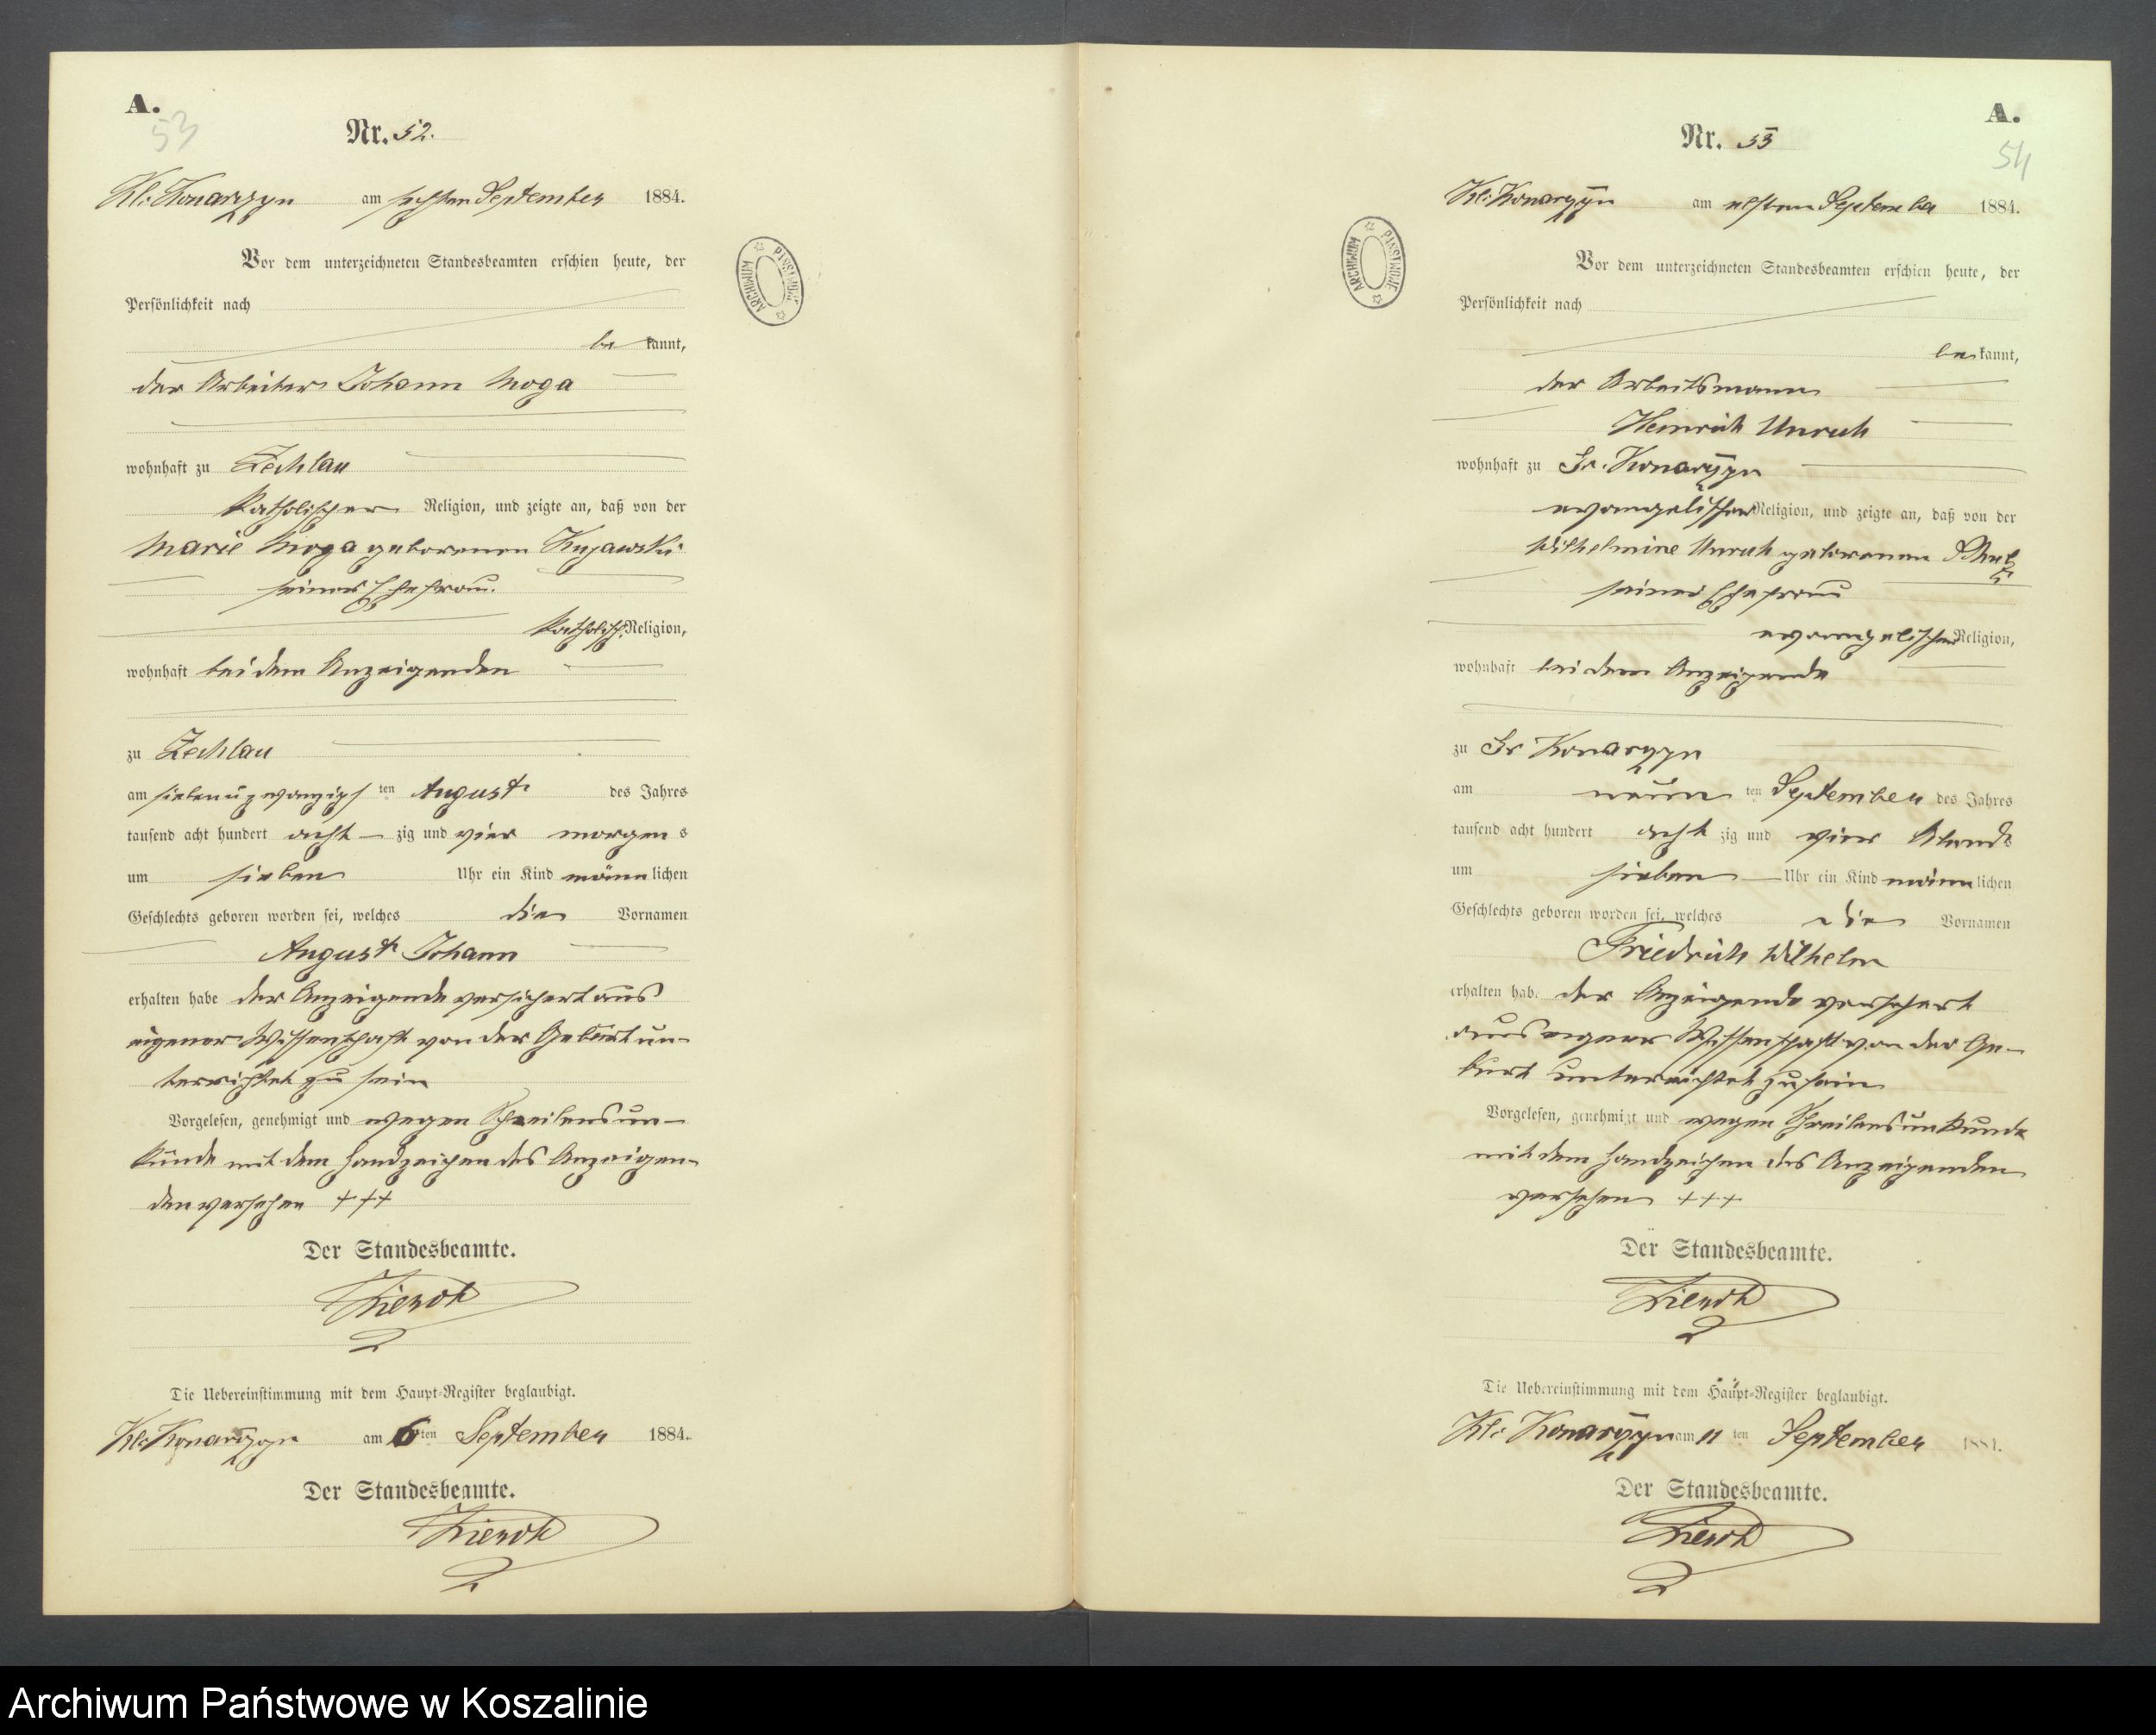 A.
53
Nr. 52.
Kl: Konarzyn am sechsten September 1884.
Vor dem unterzeichneten Standesbeamten erschien heute, der
Persönlichkeit nach
be kannt,
der Arbeiter Johann Moga
wohnhaft zu Zechlau
katholischer Religion, und zeigte an, daß von der
Marie Moga geborenen Kujawski
seiner Ehefrau.
katholisch. Religion,
wohnhaft bei dem Anzeigenden
zu Zechlau
am siebenuzwanzigs ten August des Jahres
tausend acht hundert acht zig und vier morgen s
um sieben Uhr ein Kind männ lichen
Geschlechts geboren worden sei, welches die Vornamen
August Johann
erhalten habe der Anzeigende versichert aus
eigener Wissenschaft von der Geburt un-
terrichtet zu sein
Vorgelesen, genehmigt und wegen Schreibensun-
kunde mit dem Handzeichen des Anzeigen-
den versehen +++
Der Standesbeamte.
Die Uebereinstimmung mit dem Haupt-Register beglaubigt.
Kl: Konarzyn am 6 ten September 1884.
Der Standesbeamte.
ARCHIWUM PAŃSTWOWE
A.
54
Nr. 53
Kl: Konarzyn am elften September 1884.
Vor dem unterzeichneten Standesbeamten erschien heute, der
Persönlichkeit nach
be kannt,
der Arbeitsmann
Heinrich Unruh
wohnhaft zu Gr. Konarzyn
evangelischer Religion, und zeigte an, daß von der
Wilhelmine Unruh geborenen
seiner Ehefrau
evangelischer Religion,
wohnhaft bei dem Anzeigende
zu Gr Konarzyn
am neun ten September des Jahres
tausend acht hundert acht zig und vier Abends
um sieben Uhr ein Kind männ lichen
Geschlechts geboren worden sei, welches die Vornamen
Friedrich Wilhelm
erhalten hab. der Anzeigende versichert
aus eigner Wissenschaft von der Ge-
burt unterrichtet zu sein
Vorgelesen, genehmigt und wegen Schreibensunkunde
mit dem Handzeichen des Anzeigenden
versehen +++
Der Standesbeamte.
Die Uebereinstimmung mit dem Haupt-Register beglaubigt.
Kl: Konarzyn am 11 ten September 1884.
Der Standesbeamte.
ARCHIWUM PAŃSTWOWE
Archiwum Państwowe w Koszalinie